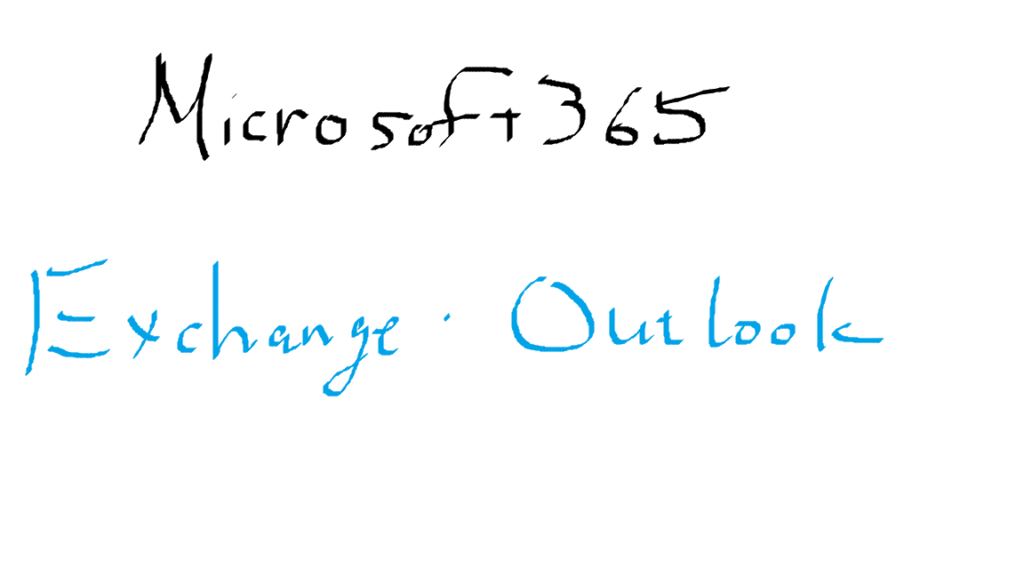 Microsoft 365
Exchange · Outlook